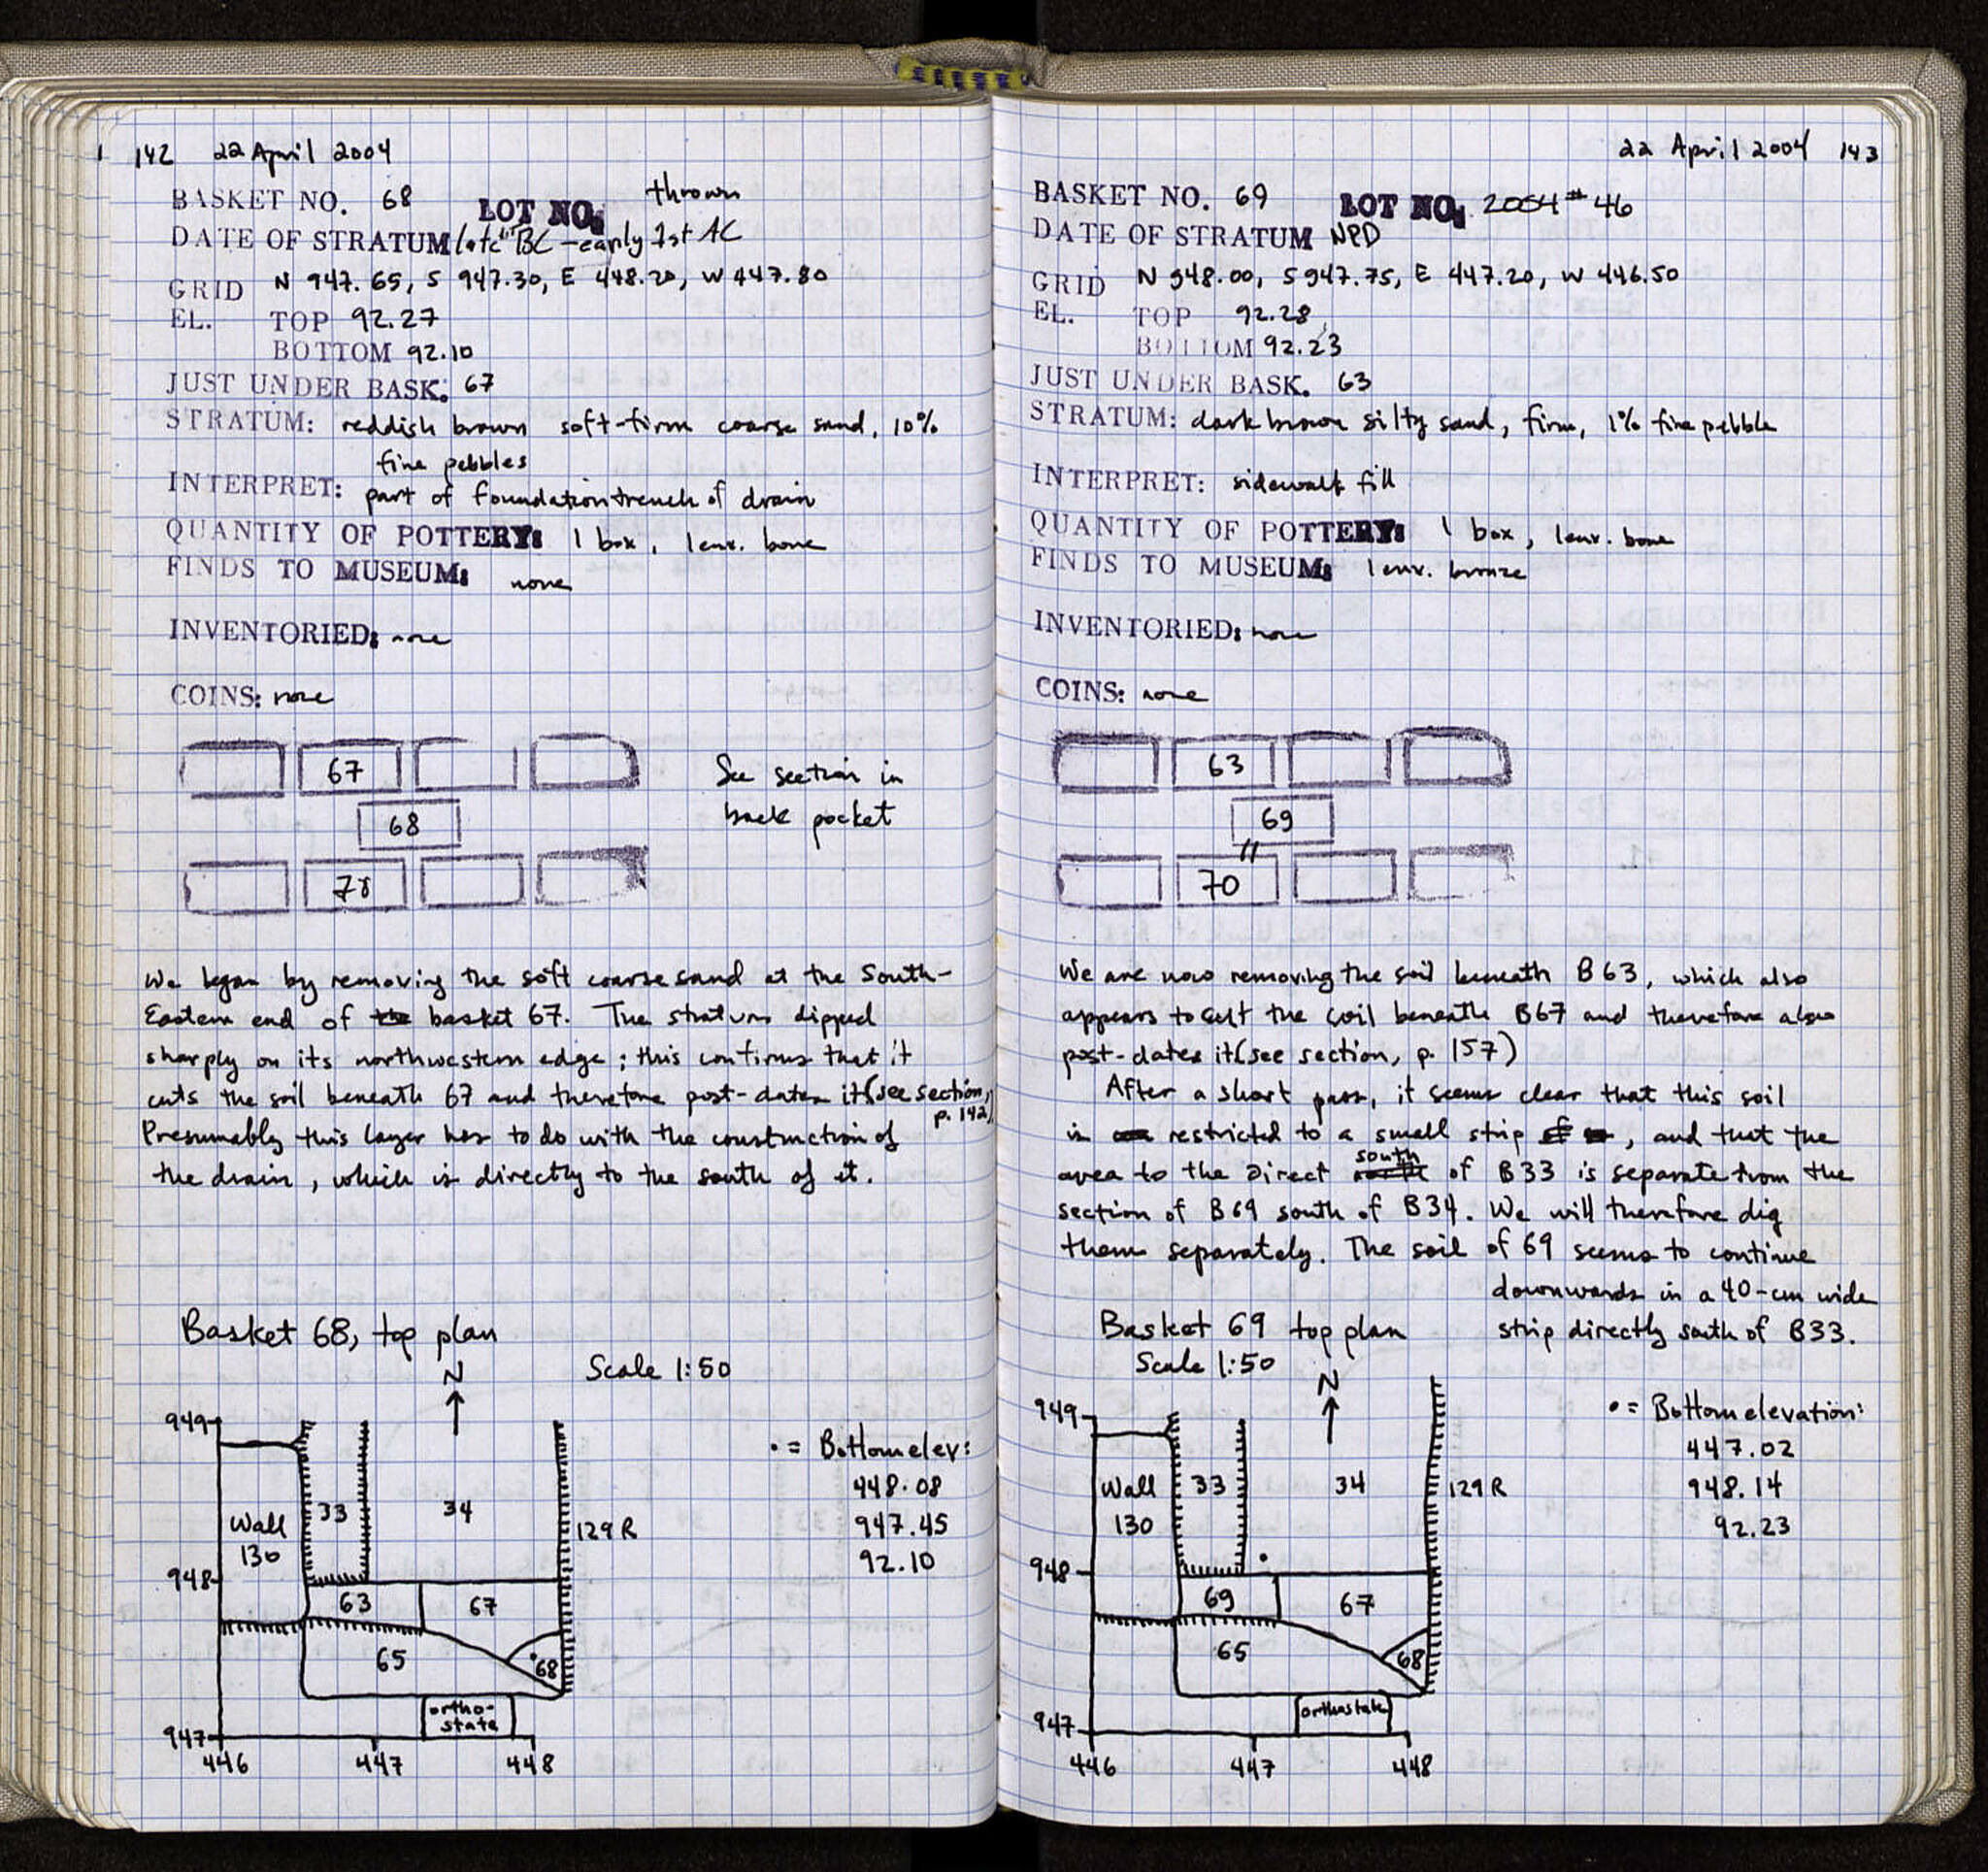 142 22 April 2004
BASKET NO. 68 LOT NO. thrown
DATE OF STRATUM late BC - early 1st AC
GRID N 947.65, S 947.30, E 448.20, W 447.80
EL. TOP 92.27
BOTTOM 92.10
JUST UNDER BASK. 67
STRATUM: reddish brown soft-firm coarse sand, 10%
fine pebbles
INTERPRET: part of foundation trench of drain
QUANTITY OF POTTERY: 1 box, 1 env. bone
FINDS TO MUSEUM: none
INVENTORIED: none
COINS: none
67
68
78
See section in
back pocket
We began by removing the soft coarse sand at the South-
Eastern end of the basket 67. The stratum dipped
sharply on its northwestern edge; this confirms that it
cuts the soil beneath 67 and therefore post-dates it (see section,
p. 142)
Presumably this layer has to do with the construction of
the drain, which is directly to the south of it.
Basket 68, top plan
N
Scale 1:50
949
948
947
446 447 448
Wall
130
33
34
129 R
63
67
65
68
ortho-
state
• = Bottom elev:
448.08
947.45
92.10
22 April 2004 143
BASKET NO. 69 LOT NO. 2004 # 46
DATE OF STRATUM NPD
GRID N 948.00, S 947.75, E 447.20, W 446.50
EL. TOP 92.28
BOTTOM 92.23
JUST UNDER BASK. 63
STRATUM: dark brown silty sand, firm, 1% fine pebble
INTERPRET: sidewalk fill
QUANTITY OF POTTERY: 1 box, 1 env. bone
FINDS TO MUSEUM: 1 env. bronze
INVENTORIED: none
COINS: none
63
69
70
We are now removing the soil beneath B63, which also
appears to cut the soil beneath B67 and therefore also
post-dates it (see section, p. 157)
After a short pass, it seems clear that this soil
is restricted to a small strip, and that the
area to the direct south of B33 is separate from the
section of B69 south of B34. We will therefore dig
them separately. The soil of 69 seems to continue
downwards in a 40-cm wide
strip directly south of B33.
Basket 69 top plan
Scale 1:50
N
949
948
947
446 447 448
Wall
130
33
34
129 R
69
67
65
68
orthostate
• = Bottom elevation:
447.02
948.14
92.23